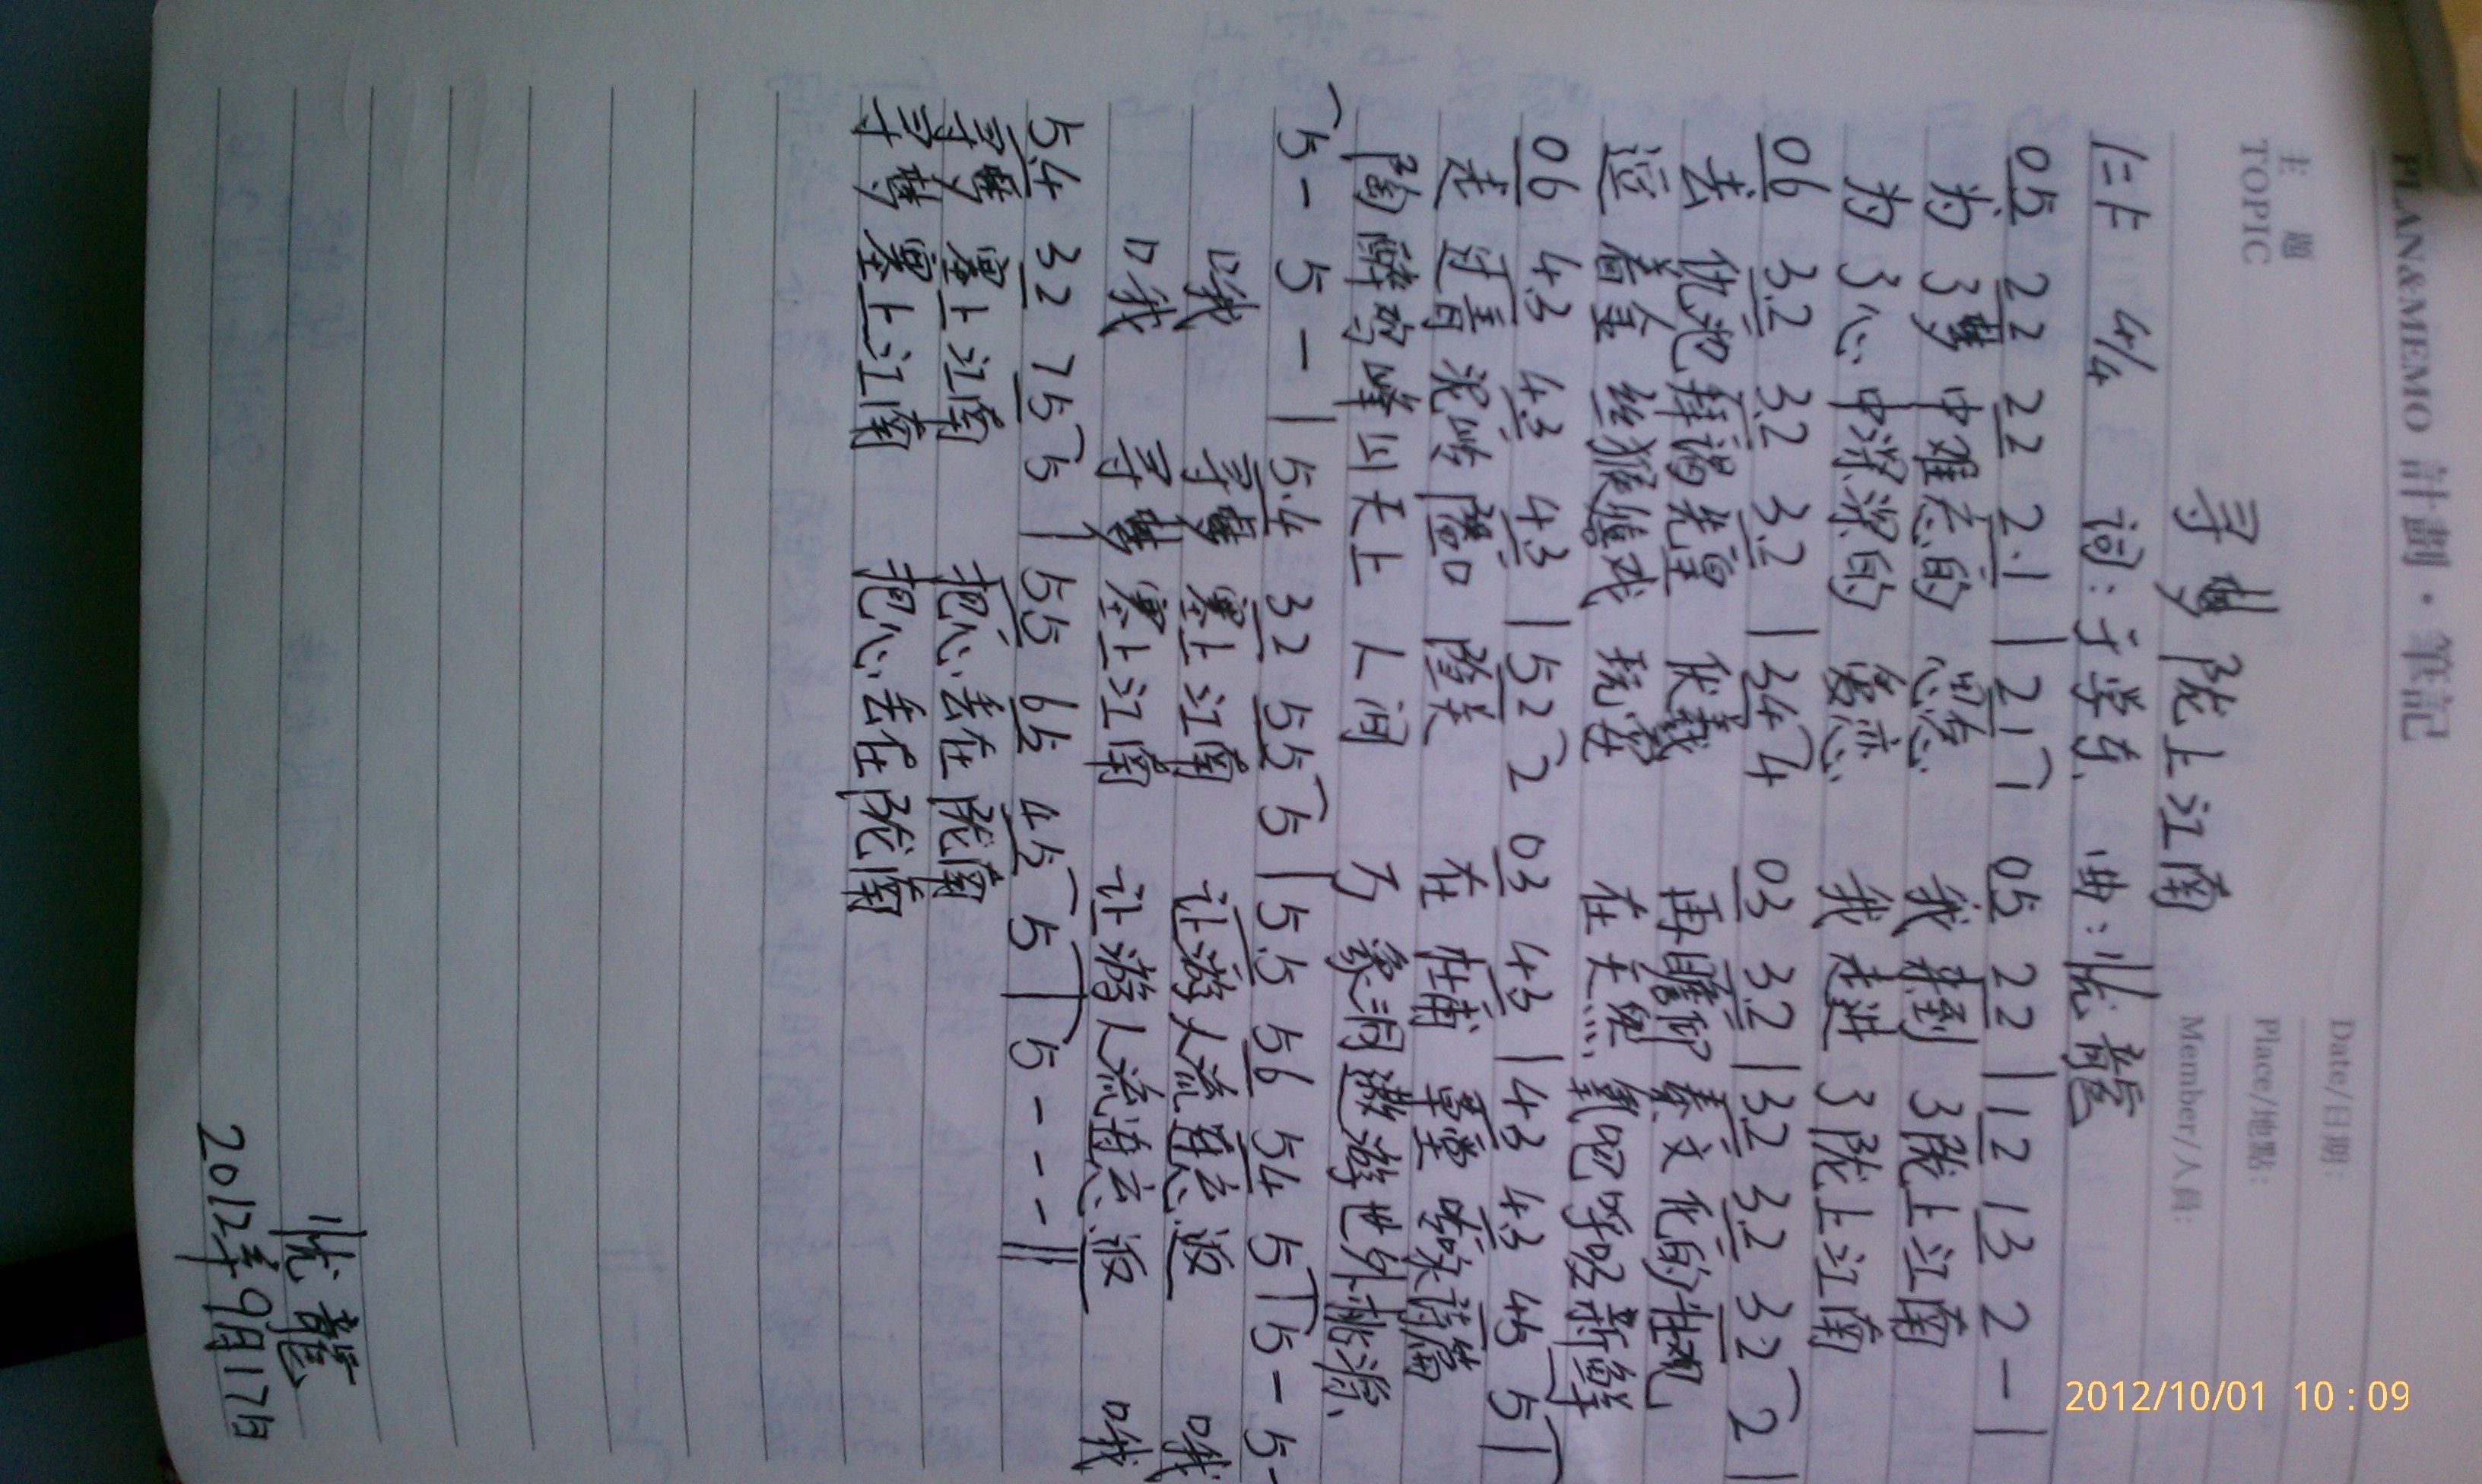 PLAN&MEMO 計劃·筆記
主題
TOPIC
Date/日期:
Place/地點:
Member/人員:
寻梦陇上江南
1=F 4/4 词:于学东 曲:陇龍
05 22 22 2·1 | 21 1 05 22 | 12 13 2 - |
为了梦中难忘的 思念 我来到了陇上江南
为了心中深深的 爱恋 我走进了陇上江南
06 3.2 3.2 3.2 | 34 4 03 3.2 | 3.2 3.2 3.2 2 |
去仇池拜谒先皇 伏羲 再瞻仰秦文化的壮观
逗着金丝猴嬉戏 玩耍 在天然氧吧呼吸新鲜
06 4.3 4.3 4.3 | 52 2 03 4.3 | 4.3 4.3 45 5 |
走过青泥岭 隘口 险关 在杜甫草堂吟咏诗篇
陶醉鸡峰山天上 人间 万象洞遨游世外桃源
5 - 5 - | 5.4 32 55 5 | 5.5 56 54 5 | 5 - 5 -
哦 寻梦塞上江南 让游人流连忘返 哦
哦 寻梦塞上江南 让游人流连忘返 哦
5.4 32 75 5 | 5.5 65 45 5 | 5 - - - ‖
寻梦塞上江南 把心丢在陇南
寻梦塞上江南 把心丢在陇南
陇龍
2012年9月17日
2012/10/01 10:09